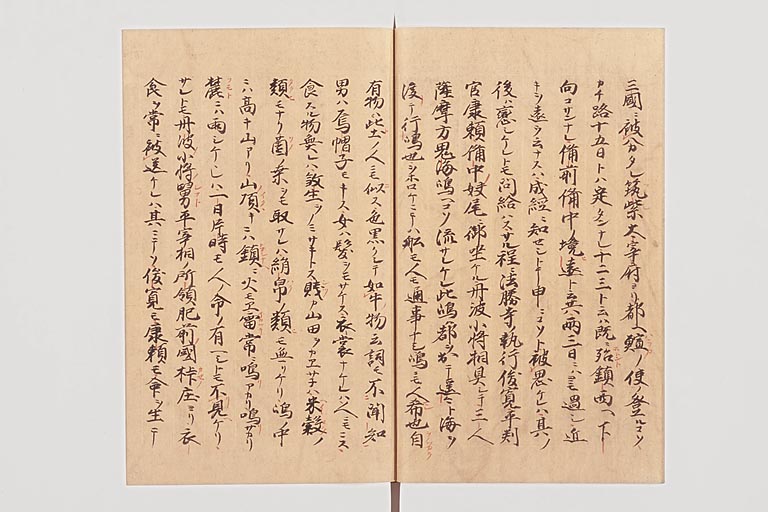 三國ニ被分タレ筑紫大宰府ヨリ都ヘ鰚ノ使ノ登ルコソ
カチ路十五日トハ定タンナレ十二三日ト云ハ既ニ殆鎮西ヘ下
向コサンナレ備前備中ノ境遠ト云共両三日ニハヨモ過シ近
キヲ遠ウ云ナスハ成經ニ知セシトテ申ニコソト被思ケレハ其ノ
後ハ戀シケレトモ問給ハス去ル程ニ法勝寺執行俊寛平判
官康頼備中妹尾ニ御坐ケル丹波少将相具シテ三人
薩摩方鬼海嶋ヘコソ流サレケレ此嶋都ヲ出テ遥ニト海ヲ
渡テ行嶋也オホロケニテハ舩モ人モ通事ナシ嶋ニモ人希也自
有物ハ此土ノ人ニ似ス色黒クシテ如牛物云詞モ不聞知
男ハ烏帽子モキス女ハ髪ヲモサケス衣裳ナケレハ人ニモニス
食スル物無レハ殺生ヲノミサキトス賤カ山田ヲカエサネハ米穀ノ
類モナク園ノ桒ヲモ取サレハ絹帛ノ類モ無リケリ嶋ノ中
ニハ高キ山アリ山頂キニハ鎮ニ火モエ雷常ニ鳴アカリ鳴サカリ
麓ニハ雨シケケレハ一日片時モ人ノ命ノ有ヘシトモ不見ケリ
サレトモ丹波少将舅平宰相ノ所領肥前國桛庄ヨリ衣
食ヲ常ニ被送ケレハ其ニテソ俊寛モ康頼モ命ヲ生テ